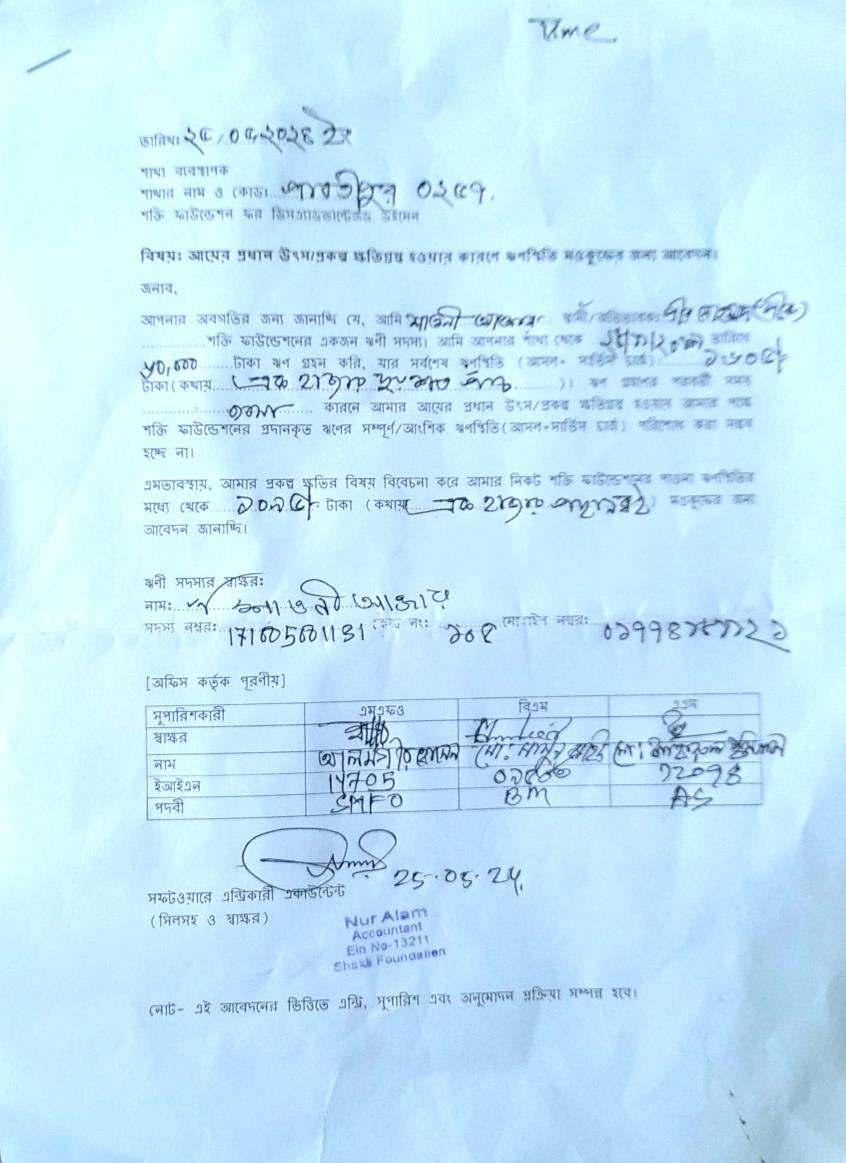 তারিখঃ ২৫/০৫/২০২৪ ইং
শাখা ব্যবস্থাপক
শাখার নাম ও কোডঃ পার্বতীপুর ০২৫৭.
শক্তি ফাউন্ডেশন ফর ডিসএ্যাডভান্টেজড উইমেন
বিষয়ঃ আয়ের প্রধান উৎস/প্রকল্প ক্ষতিগ্রস্ত হওয়ার কারণে ঋণস্থিতি মওকুফের জন্য আবেদন।
জনাব,
আপনার অবগতির জন্য জানাচ্ছি যে, আমি শাওনী আক্তার স্বামী/অভিভাবকঃ
শক্তি ফাউন্ডেশনের একজন ঋণী সদস্য। আমি আপনার শাখা থেকে তারিখে
টাকা ঋণ গ্রহন করি, যার সর্বশেষ ঋণস্থিতি (আসল+ সার্ভিস চার্জ)
টাকা (কথায় এক হাজার দুইশত পাঁচ )। ঋণ গ্রহনের পরবর্তী সময়
কারণে আমার আয়ের প্রধান উৎস/প্রকল্প ক্ষতিগ্রস্ত হওয়ায় আমার পক্ষে
শক্তি ফাউন্ডেশনের প্রদানকৃত ঋণের সম্পূর্ণ/আংশিক ঋণস্থিতি (আসল+সার্ভিস চার্জ) পরিশোধ করা সম্ভব
হচ্ছে না।
এমতাবস্থায়, আমার প্রকল্প ক্ষতির বিষয় বিবেচনা করে আমার নিকট শক্তি ফাউন্ডেশনের পাওনা ঋণস্থিতির
মধ্যে থেকে টাকা (কথায় এক হাজার ) মওকুফের জন্য
আবেদন জানাচ্ছি।
ঋণী সদস্যর স্বাক্ষরঃ
নামঃ শাওনী আক্তার
সদস্য নম্বরঃ নংঃ মোবাইল নম্বরঃ
[অফিস কর্তৃক পূরণীয়]
সুপারিশকারী এমএফও বিএম এএস
স্বাক্ষর
নাম আলমগীর হোসেন মোঃ
ইআইএন 14705
পদবী SMFO BM AS
25.05.24
সফটওয়ারে এন্ট্রিকারী একাউন্টেন্ট
(সিলসহ ও স্বাক্ষর)
Nur Alam
Accountant
Ein No-13211
Shakti Foundation
নোট- এই আবেদনের ভিত্তিতে এন্ট্রি, সুপারিশ এবং অনুমোদন প্রক্রিয়া সম্পন্ন হবে।